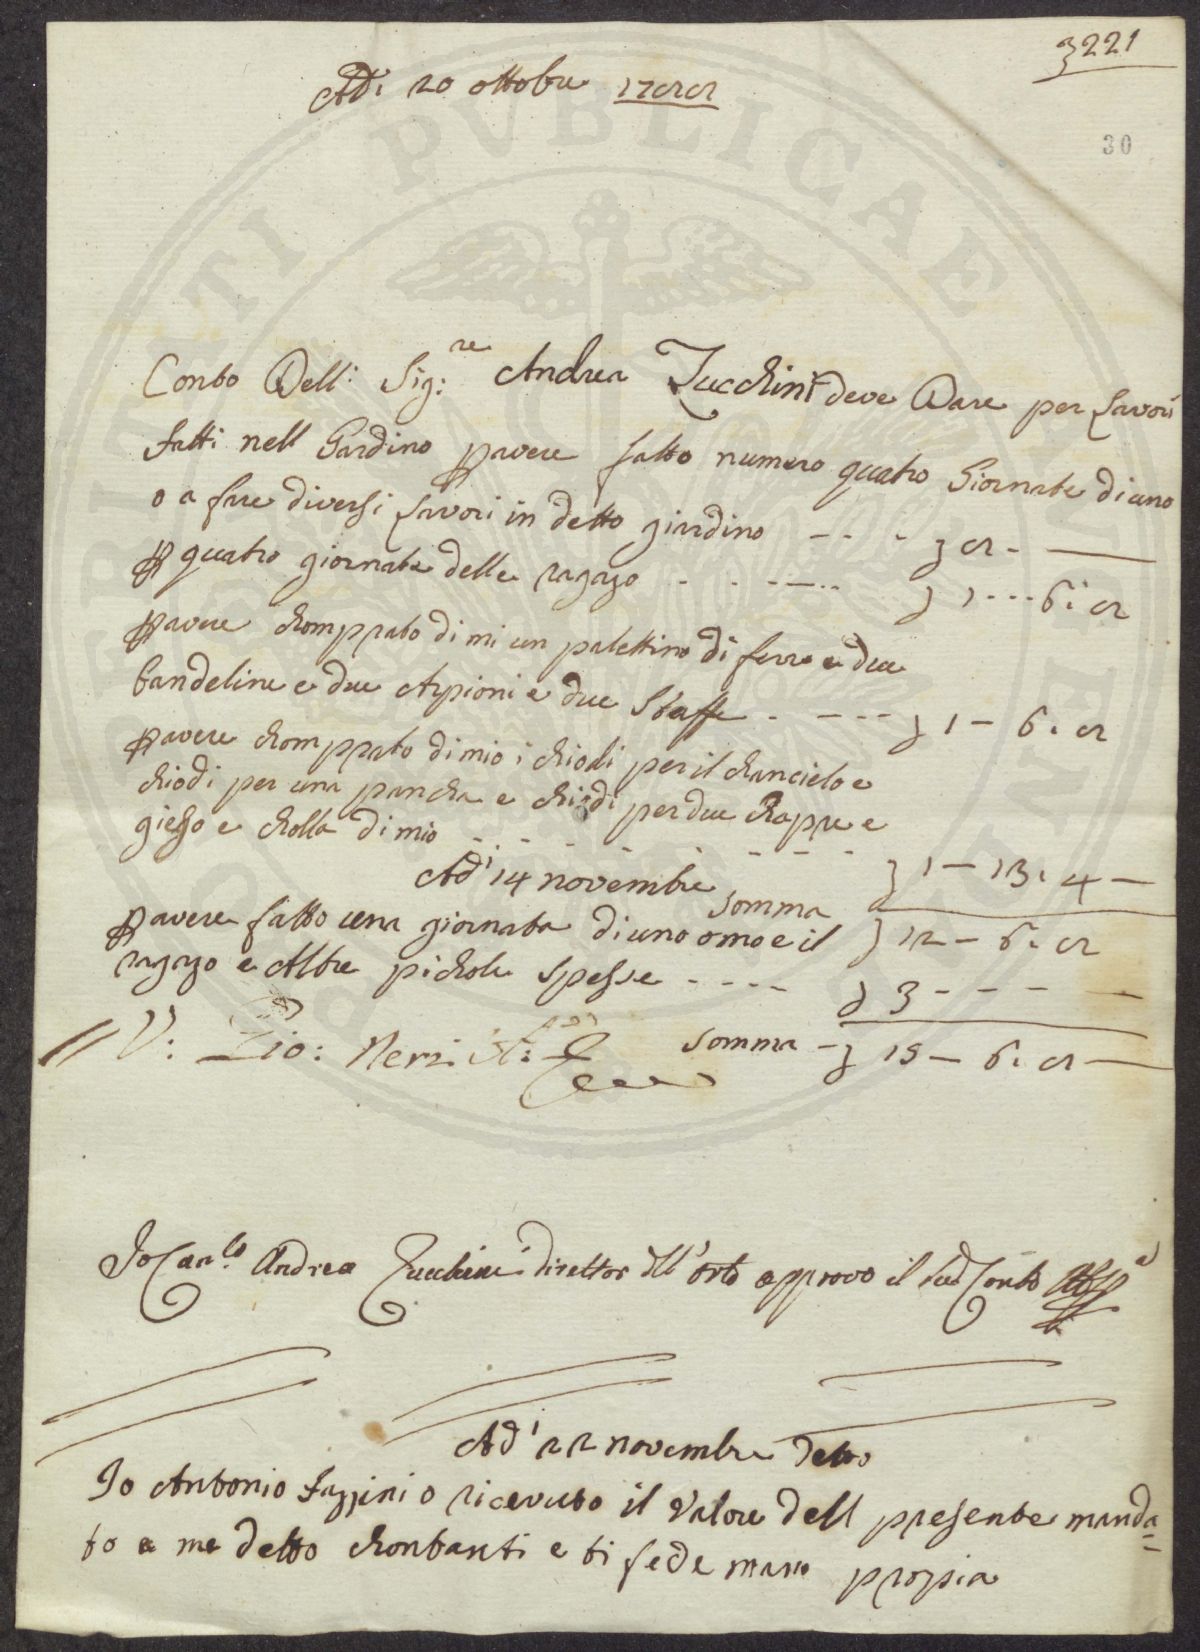 3221
Adi 20 ottobre
30
Conto Dell: Sig:re Andrea Zucchini deve Dare per Lavori
fatti nell Gardino p avere fatto numero quatro Giornate di uno
o a fare diversi Lavori in detto giardino - - - 3
p quatro giornate delle ragazo - - - - 1 - - - 6:
p avere chomprato di mi un palettino di ferro e due
bandeline e due Arpioni e due Staffe - - - - 1 - 6.
p avere chomprato di mio i chiodi per il chancielo e
chiodi per una pancha e chiodi per due chappe e
gieso e cholla di mio - - - - - - - 1 - 13. 4 -
Adi 14 novembre
somma 12 - 6.
p avere fatto una giornata di uno omo e il
ragazo e Altre pichole spesse - - - - 3 - - - -
V: Gio: Neri
somma - 15 - 6.
Io Can.co Andrea Zucchini direttor dell'orto approvo il sud Conto
Ad' 22 novembre detto
Io Antonio Fazzini o ricevuto il Valore dell presente manda=
to a me detto chontanti e ti fede mano propia